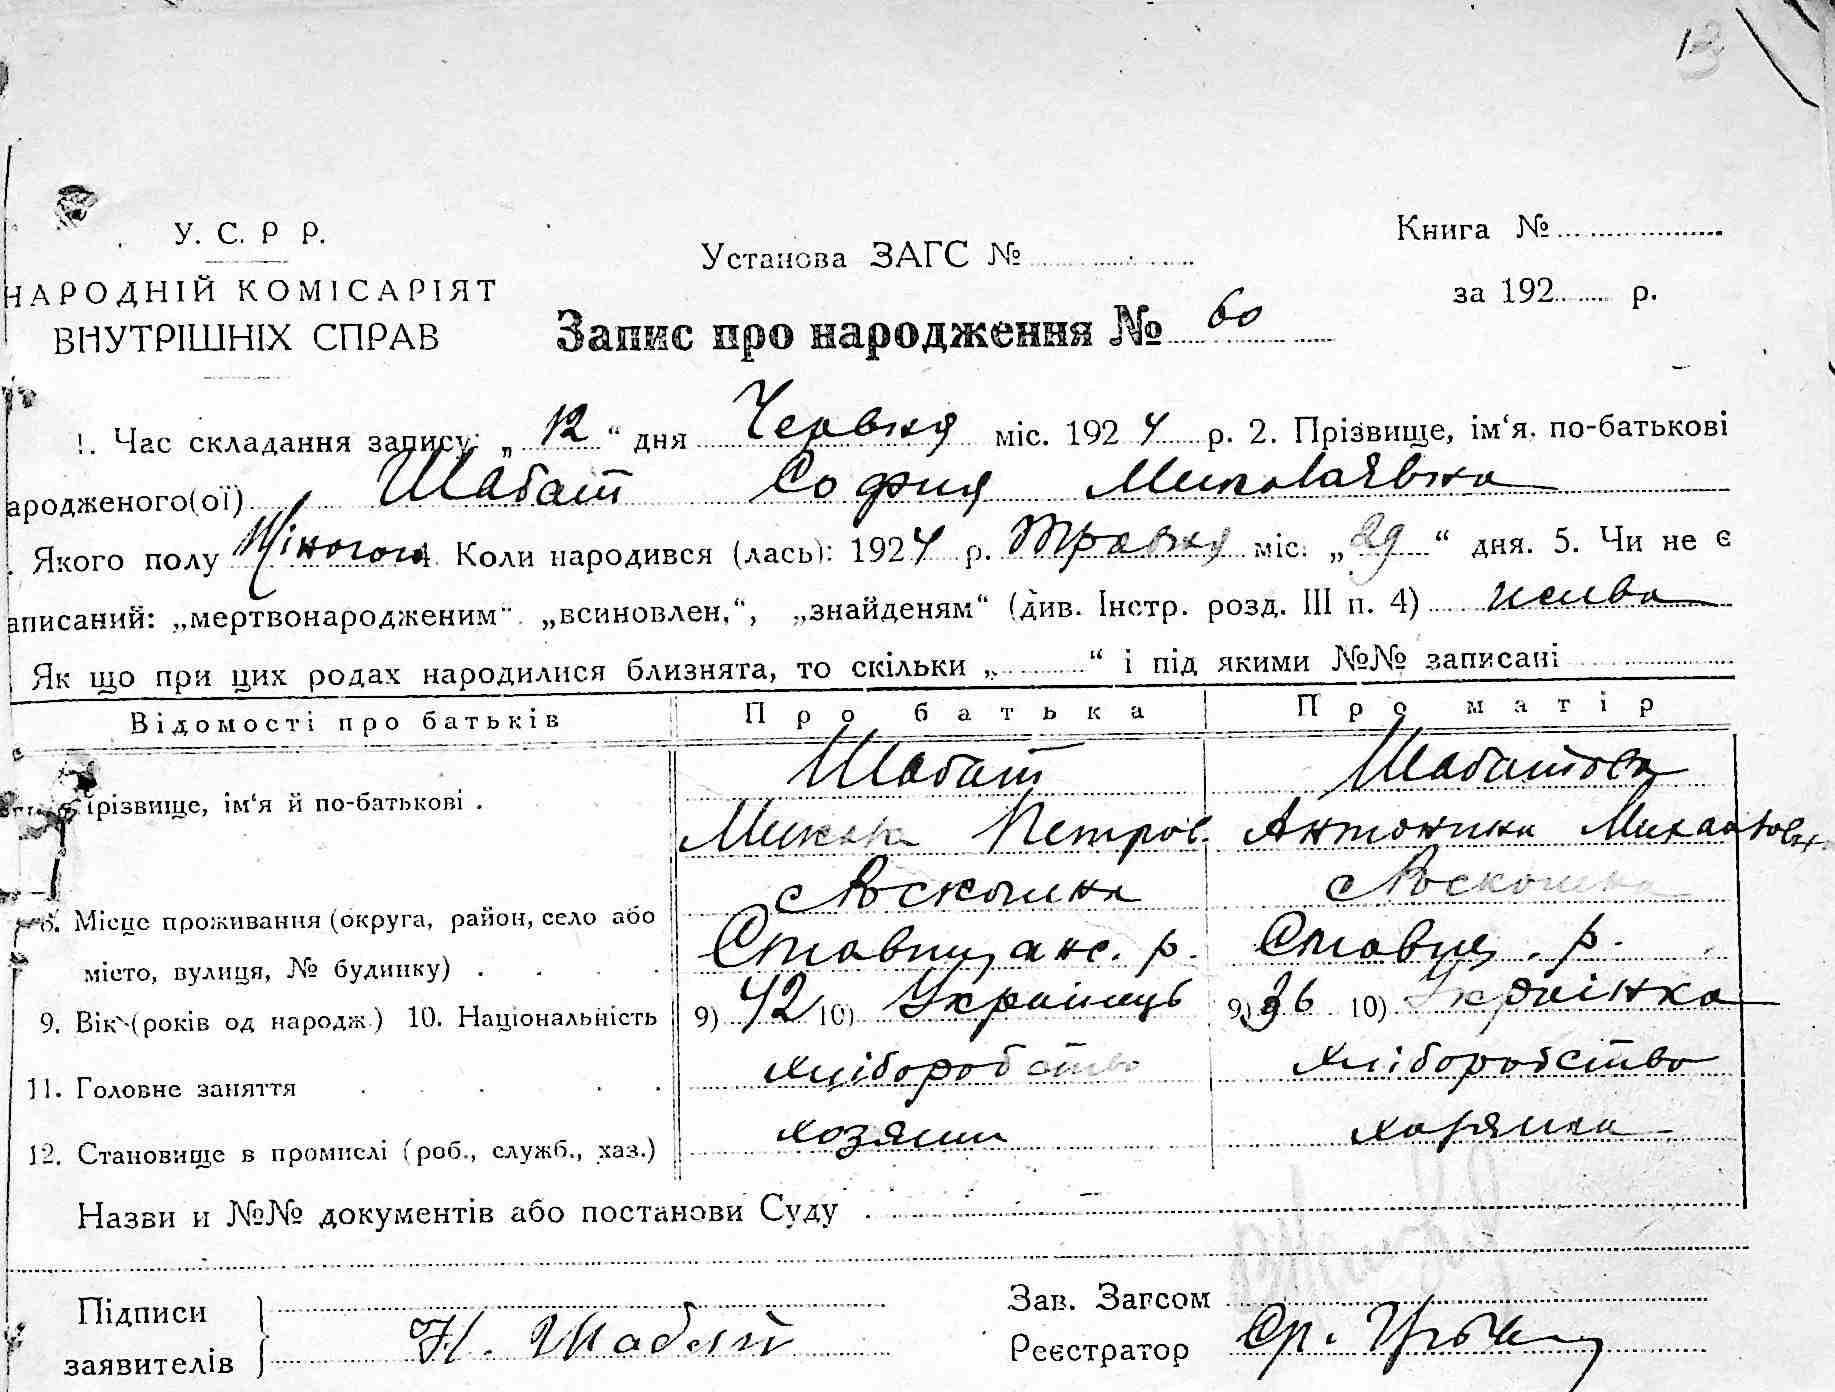 13
У. С. Р Р.
НАРОДНІЙ КОМІСАРІЯТ
ВНУТРІШНІХ СПРАВ
Установа ЗАГС №
Книга №
за 192 р.
Запис про народження № 60
1. Час складання запису: „12“ дня Червня міс. 1924 р. 2. Прізвище, ім‘я, по-батькові
ародженого(ої) Шабат София Миколаявна
. Якого полу Жіного 4. Коли народився (лась): 1924 р. Травня міс. „29“ дня. 5. Чи не є
аписаний: „мертвонародженим“ „всиновлен,“, „знайденям“ (див. Інстр. розд. III п. 4)
Як що при цих родах народилися близнята, то скільки „ “ і під якими №№ записані
Відомості про батьків Про батька Про матір
Шабат Шабатова
прізвище, ім‘я й по-батькові .
Микола Петров. Антонина
Роскошна Роскошна
8. Місце проживання (округа, район, село або
місто, вулиця, № будинку) . . . Ставищанс. р. Ставищ. р.
9. Вік (років од народж.) 10. Національність 9) 42 10) Українець 9) 36 10) Українка
11. Головне заняття . . . . хліборобство хліборобство
12. Становище в промислі (роб., служб., хаз.) хозяин хазяика
Назви и №№ документів або постанови Суду .
Підписи
заявителів
Н. Шабат
Зав. Загсом
Реєстратор